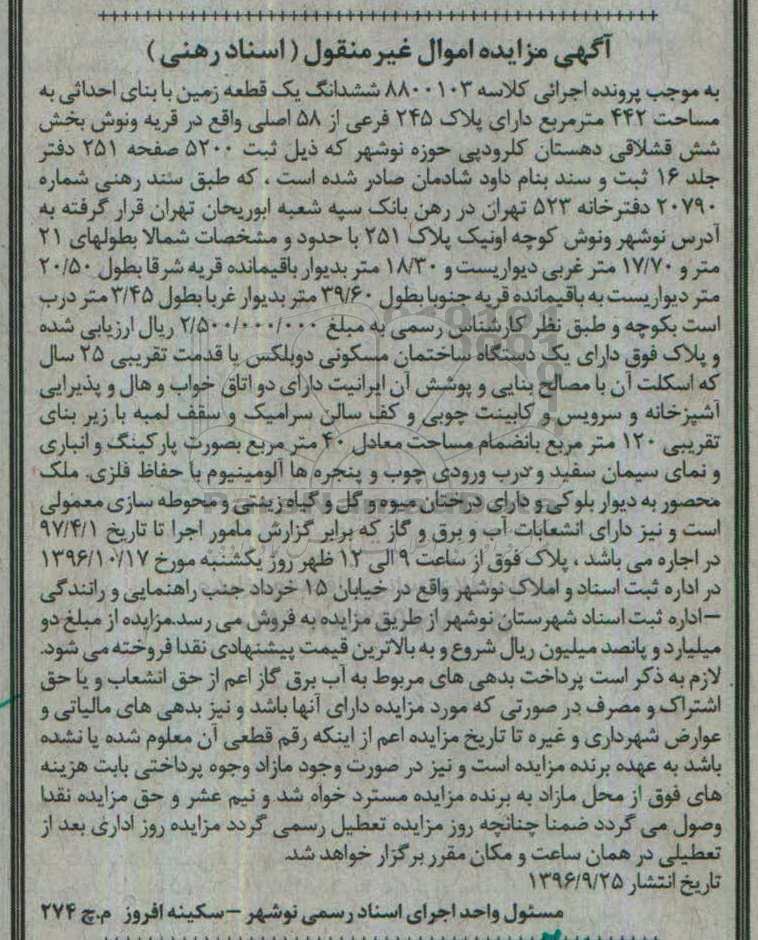 آگهی مزایده اموال غیرمنقول (اسناد رهنی)
به موجب پرونده اجرائی کلاسه ۸۸۰۰۱۰۳ ششدانگ یک قطعه زمین با بنای احداثی به
مساحت ۴۴۲ مترمربع دارای پلاک ۲۴۵ فرعی از ۵۸ اصلی واقع در قریه ونوش بخش
شش قشلاقی دهستان کلرودپی حوزه نوشهر که ذیل ثبت ۵۲۰۰ صفحه ۲۵۱ دفتر
جلد ۱۶ ثبت و سند بنام داود شادمان صادر شده است ، که طبق سند رهنی شماره
۲۰۷۹۰ دفترخانه ۵۲۳ تهران در رهن بانک سپه شعبه ابوریحان تهران قرار گرفته به
آدرس نوشهر ونوش کوچه اونیک پلاک ۲۵۱ با حدود و مشخصات شمالا بطولهای ۲۱
متر و ۱۷/۷۰ متر غربی دیواریست و ۱۸/۳۰ متر بدیوار باقیمانده قریه شرقا بطول ۲۰/۵۰
متر دیواریست به باقیمانده قریه جنوبا بطول ۳۹/۶۰ متر بدیوار غربا بطول ۳/۴۵ متر درب
است بکوچه و طبق نظر کارشناس رسمی به مبلغ ۲/۵۰۰/۰۰۰/۰۰۰ ریال ارزیابی شده
و پلاک فوق دارای یک دستگاه ساختمان مسکونی دوبلکس با قدمت تقریبی ۲۵ سال
که اسکلت آن با مصالح بنایی و پوشش آن ایرانیت دارای دو اتاق خواب و هال و پذیرایی
آشپزخانه و سرویس و کابینت چوبی و کف سالن سرامیک و سقف لمبه با زیر بنای
تقریبی ۱۲۰ متر مربع بانضمام مساحت معادل ۴۰ متر مربع بصورت پارکینگ و انباری
و نمای سیمان سفید و درب ورودی چوب و پنجره ها آلومینیوم با حفاظ فلزی. ملک
محصور به دیوار بلوکی و دارای درختان میوه و گل و گیاه زینتی و محوطه سازی معمولی
است و نیز دارای انشعابات آب و برق و گاز که برابر گزارش مامور اجرا تا تاریخ ۹۷/۴/۱
در اجاره می باشد ، پلاک فوق از ساعت ۹ الی ۱۲ ظهر روز یکشنبه مورخ ۱۳۹۶/۱۰/۱۷
در اداره ثبت اسناد و املاک نوشهر واقع در خیابان ۱۵ خرداد جنب راهنمایی و رانندگی
–اداره ثبت اسناد شهرستان نوشهر از طریق مزایده به فروش می رسد.مزایده از مبلغ دو
میلیارد و پانصد میلیون ریال شروع و به بالاترین قیمت پیشنهادی نقدا فروخته می شود.
لازم به ذکر است پرداخت بدهی های مربوط به آب برق گاز اعم از حق انشعاب و یا حق
اشتراک و مصرف در صورتی که مورد مزایده دارای آنها باشد و نیز بدهی های مالیاتی و
عوارض شهرداری و غیره تا تاریخ مزایده اعم از اینکه رقم قطعی آن معلوم شده یا نشده
باشد به عهده برنده مزایده است و نیز در صورت وجود مازاد وجوه پرداختی بابت هزینه
های فوق از محل مازاد به برنده مزایده مسترد خواه شد و نیم عشر و حق مزایده نقدا
وصول می گردد ضمنا چنانچه روز مزایده تعطیل رسمی گردد مزایده روز اداری بعد از
تعطیلی در همان ساعت و مکان مقرر برگزار خواهد شد.
تاریخ انتشار ۱۳۹۶/۹/۲۵
مسئول واحد اجرای اسناد رسمی نوشهر –سکینه افروز م.چ ۲۷۴